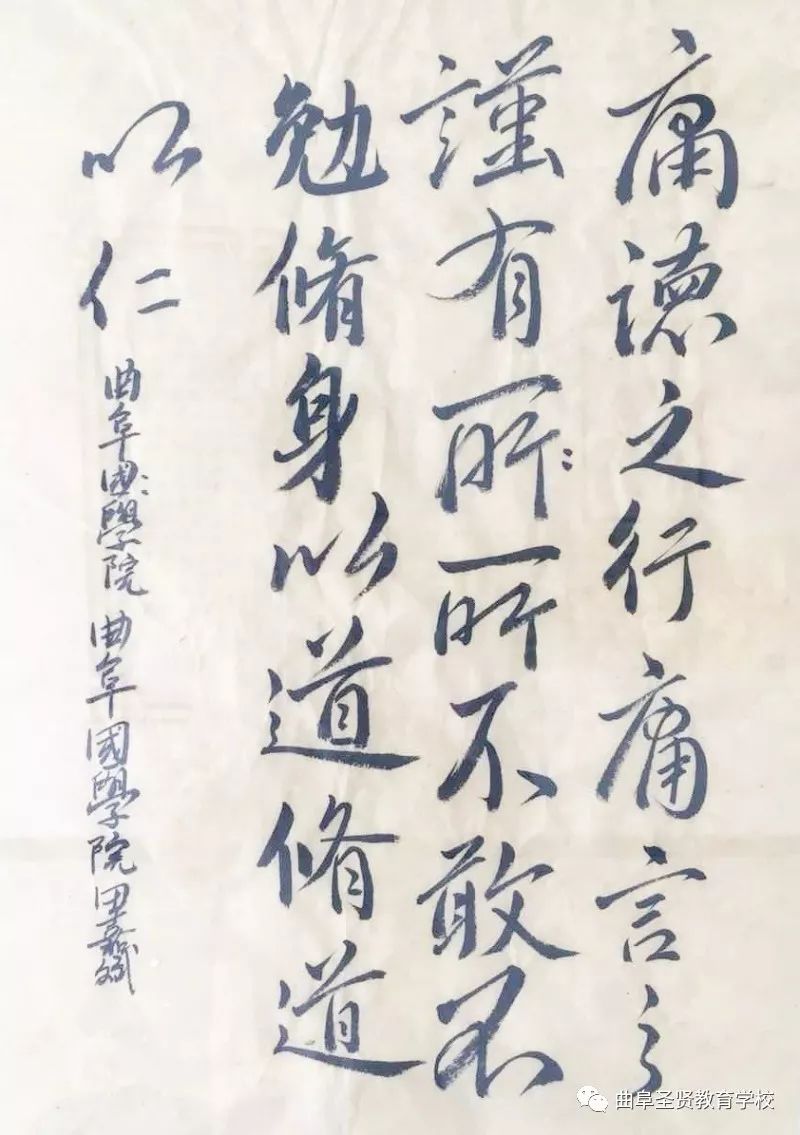 庸德之行庸言之
謹有所：所不敢不
勉脩身以道脩道
以仁
曲阜國：學院曲阜國學院田嘉斌
曲阜圣贤教育学校